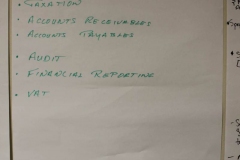 • TAXATION
• ACCOUNTS RECEIVABLES
• ACCOUNTS PAYABLES
• AUDIT
• FINANCIAL REPORTING
• VAT